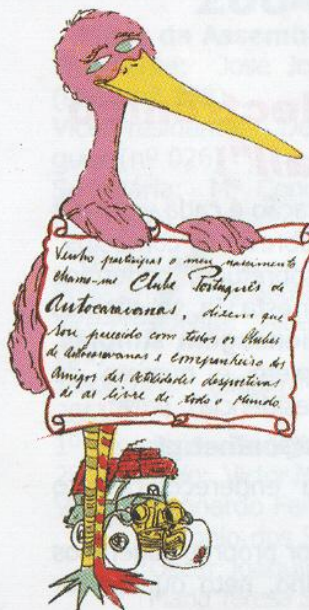 Venho participar o meu nascimento
chamo-me Clube Português de
Autocaravanas, dizem que
sou parecido com todos os Clubes
de Autocaravanas e companheiro dos
Amigos das Actividades desportivas
de ar livre de todo o Mundo